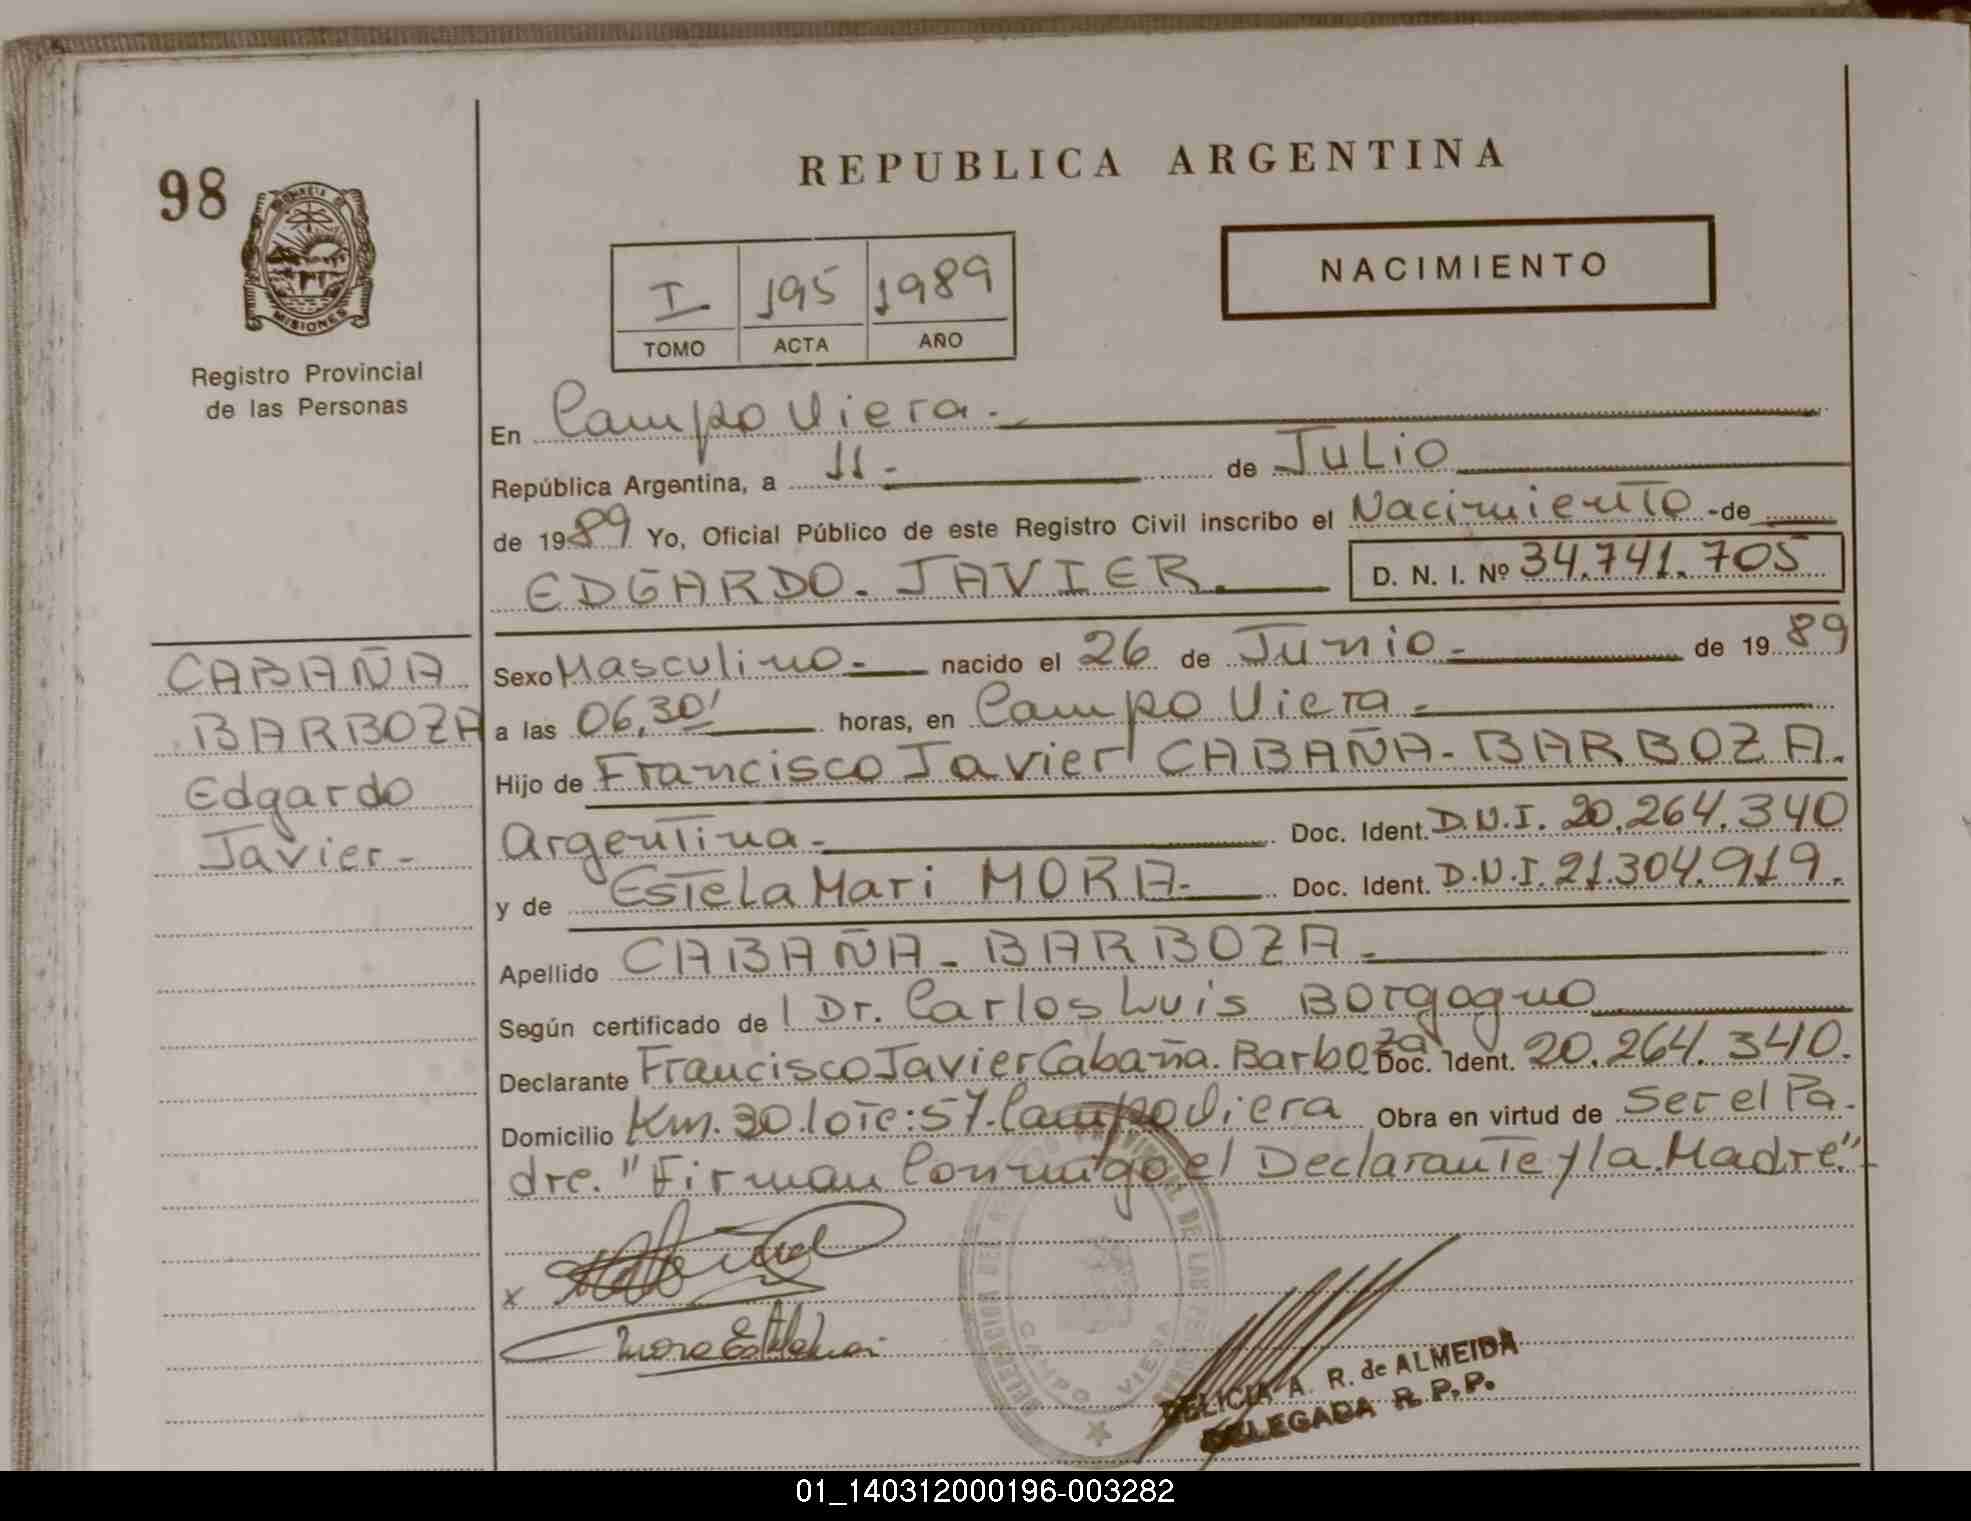 98
PROVINCIA DE
MISIONES
Registro Provincial
de las Personas
REPUBLICA ARGENTINA
I 195 1989
TOMO ACTA AÑO
NACIMIENTO
En Campo Viera.
República Argentina, a 11- de Julio
de 1989 Yo, Oficial Público de este Registro Civil inscribo el Nacimiento -de
EDGARDO. JAVIER. D. N. I. Nº 34.741.705
CABAÑA
BARBOZA
Edgardo
Javier-
Sexo Masculino- nacido el 26 de Junio- de 1989
a las 06,30' horas, en Campo Viera-
Hijo de Francisco Javier CABAÑA-BARBOZA.
Argentina- Doc. Ident. D.N.I. 20.264.340
y de Estela Mari MORA- Doc. Ident. D.N.I. 21.304.919.
Apellido CABAÑA-BARBOZA-
Según certificado de l Dr. Carlos Luis Borgogno
Declarante Francisco Javier Cabaña.Barboza Doc. Ident. 20.264.340.
Domicilio Km.30.lote:57.Campo Viera Obra en virtud de Ser el Pa-
dre. "Firman Conmigo el Declarante y la Madre"-
x
Mora Estela Mari
CAMPO VIERA
DELICIA A. R. de ALMEIDA
DELEGADA R.P.P.
01_140312000196-003282